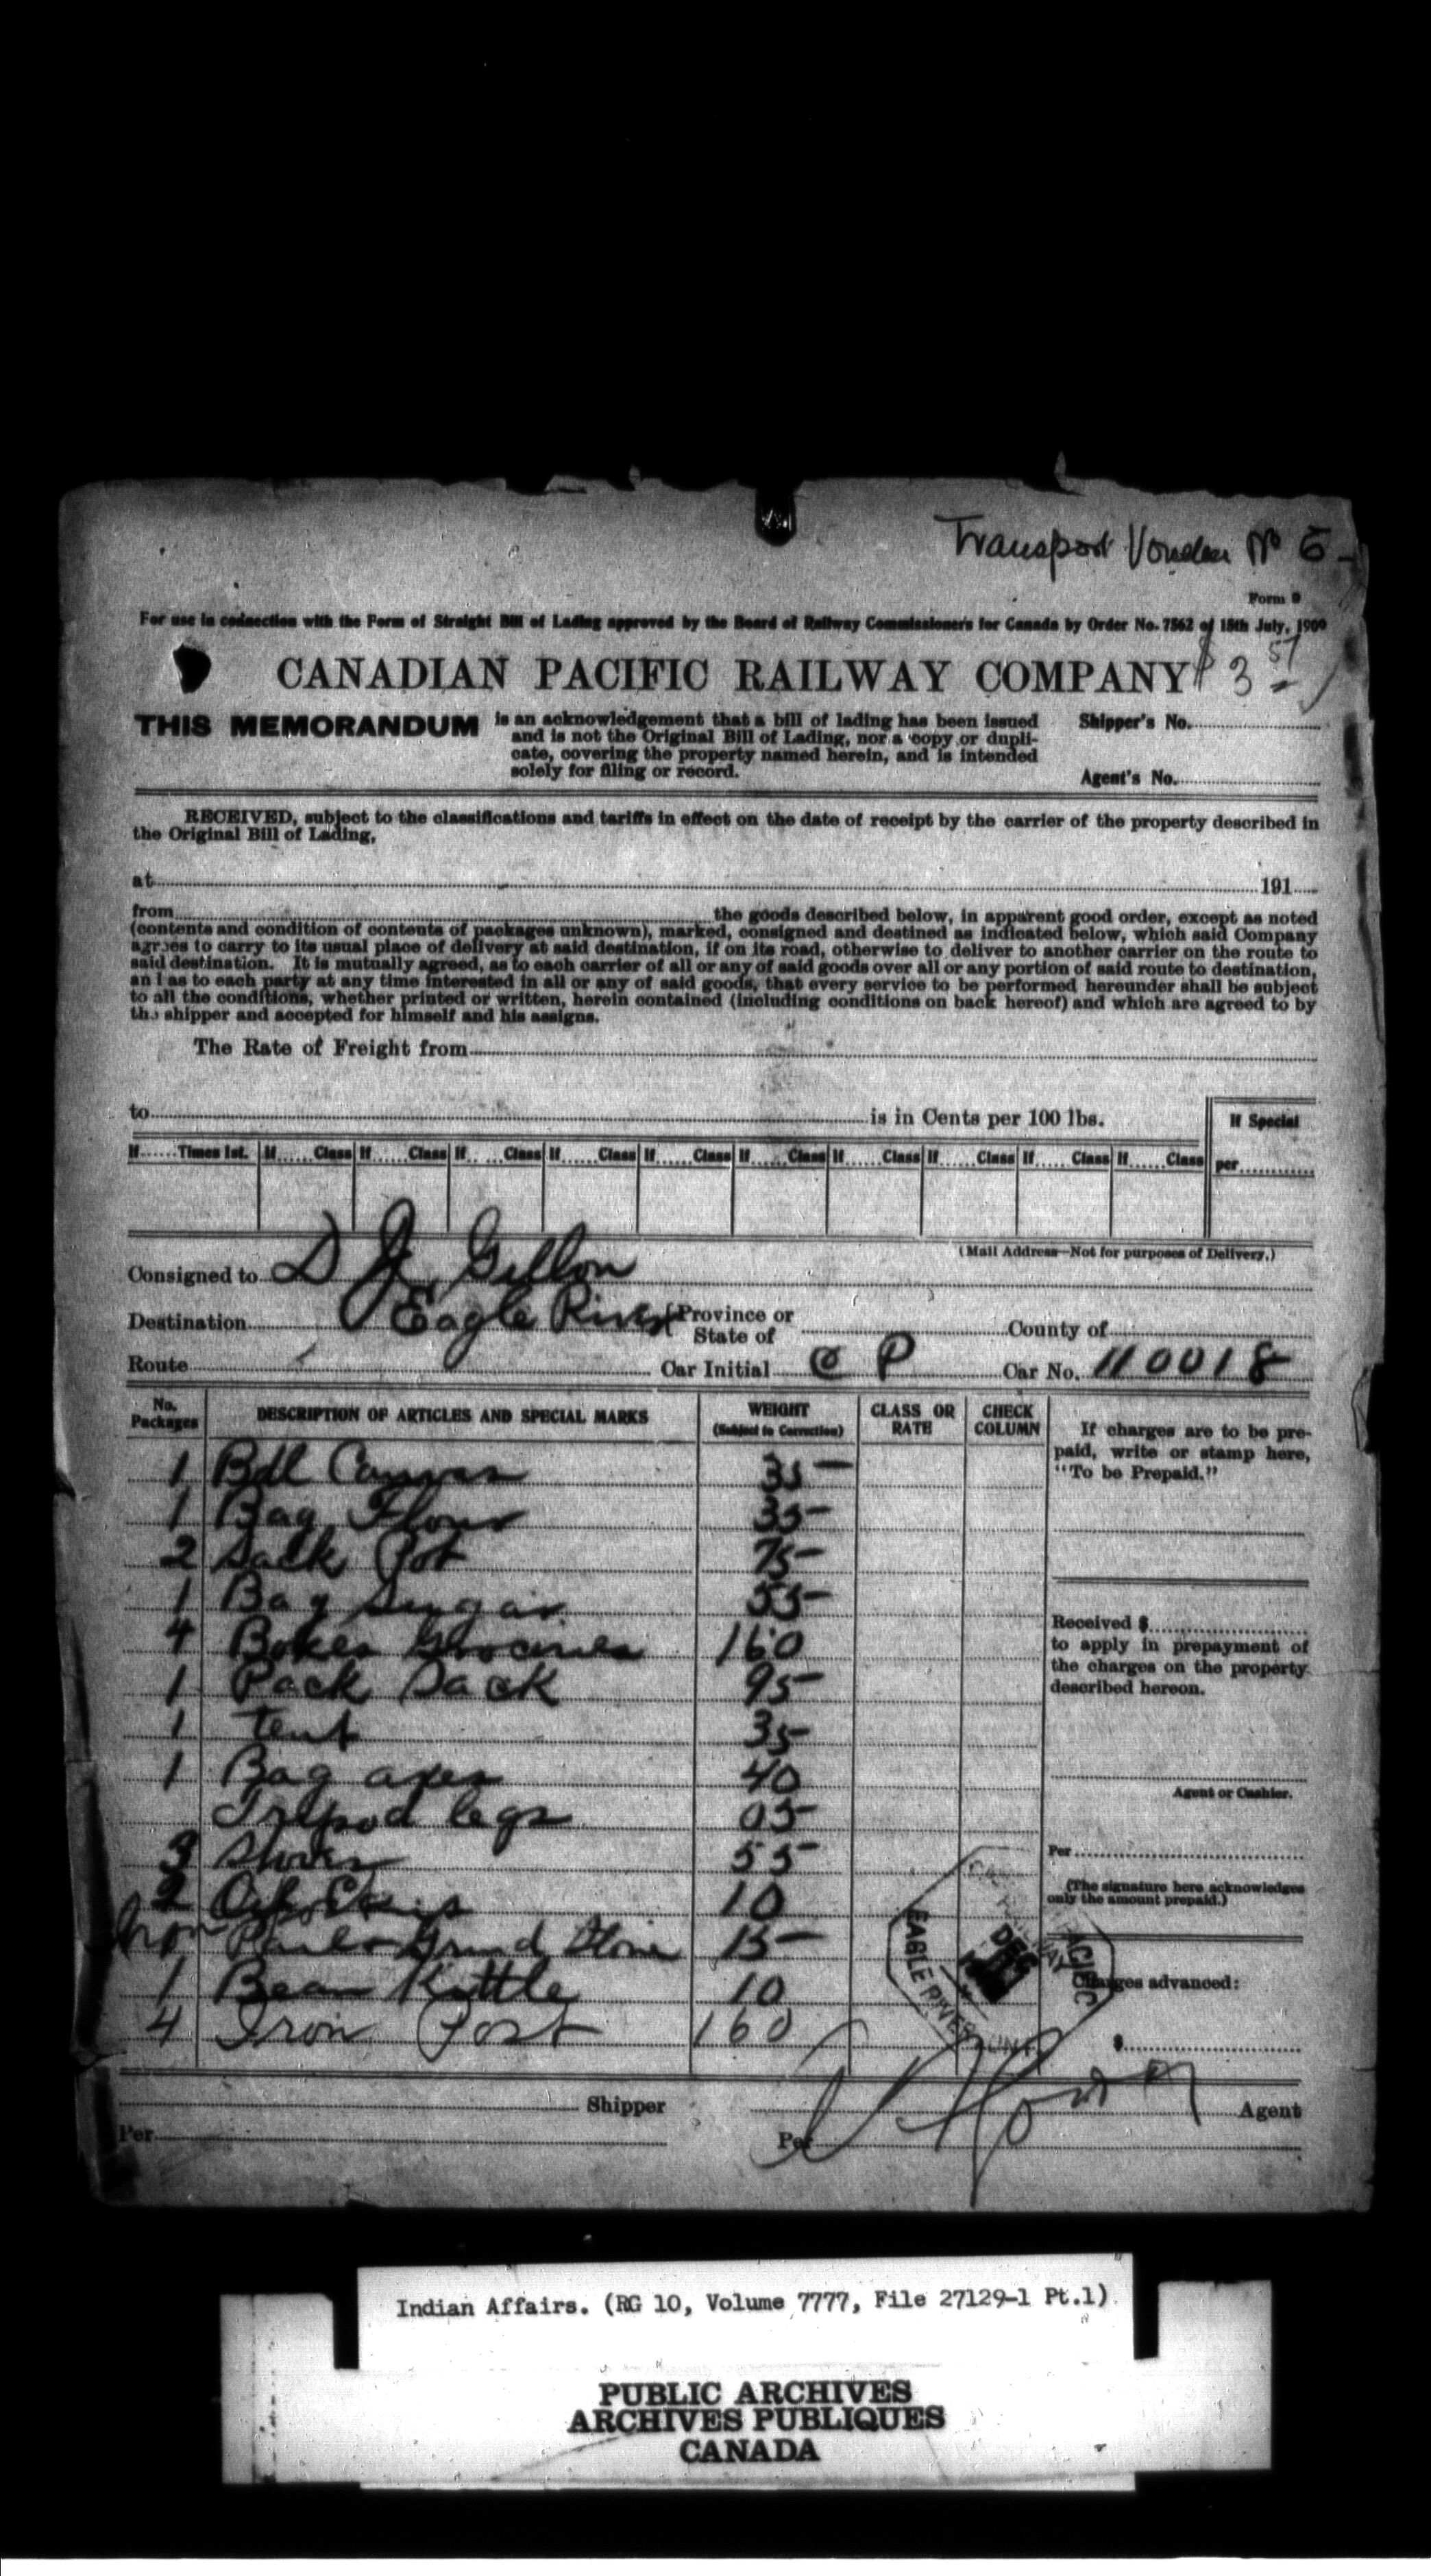 Transport Voucher No 5-
Form 9
For use in connection with the Form of Straight Bill of Lading approved by the Board of Railway Commissioners for Canada by Order No. 7562 of 15th July, 1909
CANADIAN PACIFIC RAILWAY COMPANY $ 3 57
THIS MEMORANDUM is an acknowledgement that a bill of lading has been issued
and is not the Original Bill of Lading, nor a copy or dupli-
cate, covering the property named herein, and is intended
solely for filing or record.
Shipper's No.
Agent's No.
RECEIVED, subject to the classifications and tariffs in effect on the date of receipt by the carrier of the property described in
the Original Bill of Lading,
at 191
from the goods described below, in apparent good order, except as noted
(contents and condition of contents of packages unknown), marked, consigned and destined as indicated below, which said Company
agrees to carry to its usual place of delivery at said destination, if on its road, otherwise to deliver to another carrier on the route to
said destination. It is mutually agreed, as to each carrier of all or any of said goods over all or any portion of said route to destination,
and as to each party at any time interested in all or any of said goods, that every service to be performed hereunder shall be subject
to all the conditions, whether printed or written, herein contained (including conditions on back hereof) and which are agreed to by
the shipper and accepted for himself and his assigns.
The Rate of Freight from
to is in Cents per 100 lbs.
If Special
per
If Times 1st. If Class If Class If Class If Class If Class If Class If Class If Class If Class If Class
(Mail Address—Not for purposes of Delivery.)
Consigned to D J. Gillon
Destination Eagle River Province or State of County of
Route Car Initial C P Car No. 110018
No. Packages DESCRIPTION OF ARTICLES AND SPECIAL MARKS WEIGHT (Subject to Correction) CLASS OR RATE CHECK COLUMN
1 Bdl Canvas 35-
1 Bag Flour 35-
2 Sack Pot 75-
1 Bag Sugar 55-
4 Boxes Groceries 160
1 Pack Sack 95-
1 tent 35-
1 Bag axes 40
Tripod legs 05-
3 Stoves 55-
2 10
Grind Stone 15-
1 Bean Kettle 10
4 Iron Post 160
If charges are to be pre-
paid, write or stamp here,
"To be Prepaid."
Received $
to apply in prepayment of
the charges on the property
described hereon.
Agent or Cashier.
Per
(The signature here acknowledges
only the amount prepaid.)
Charges advanced:
$
PACIFIC RAILWAY
DEC
EAGLE RIVER ONT.
Shipper Agent
Per Per
Indian Affairs. (RG 10, Volume 7777, File 27129-1 Pt.1)
PUBLIC ARCHIVES
ARCHIVES PUBLIQUES
CANADA